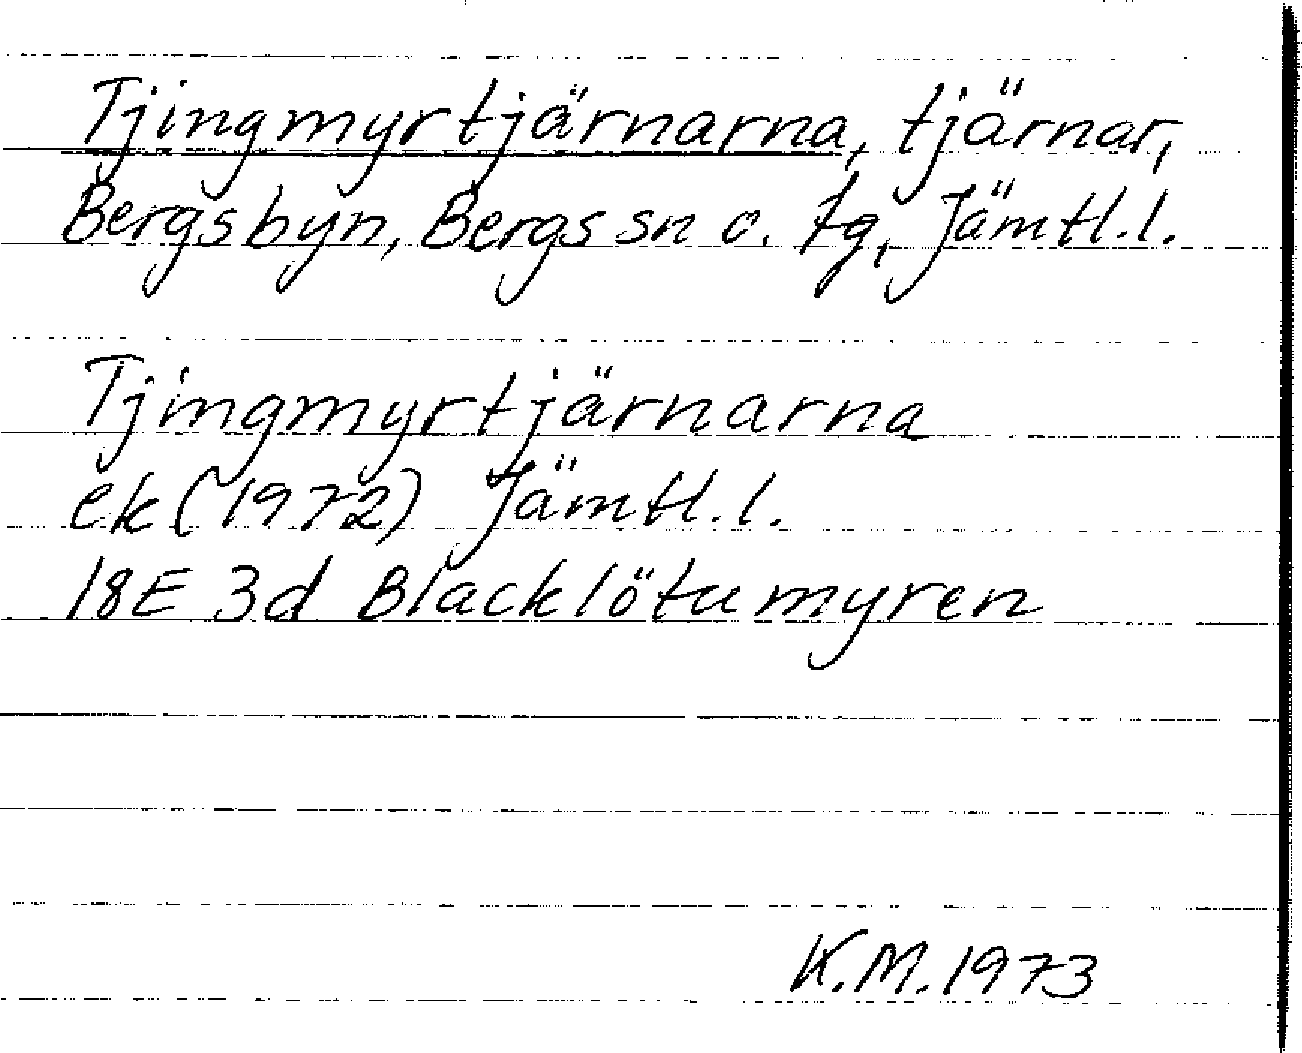 Tjingmyrtjärnarna, tjärnar,
Bergsbyn, Bergs sn o. tg, Jämtl.l.
Tjingmyrtjärnarna
ek (1972) Jämtl.l.
18E 3d Blacklötamyren
K.M. 1973